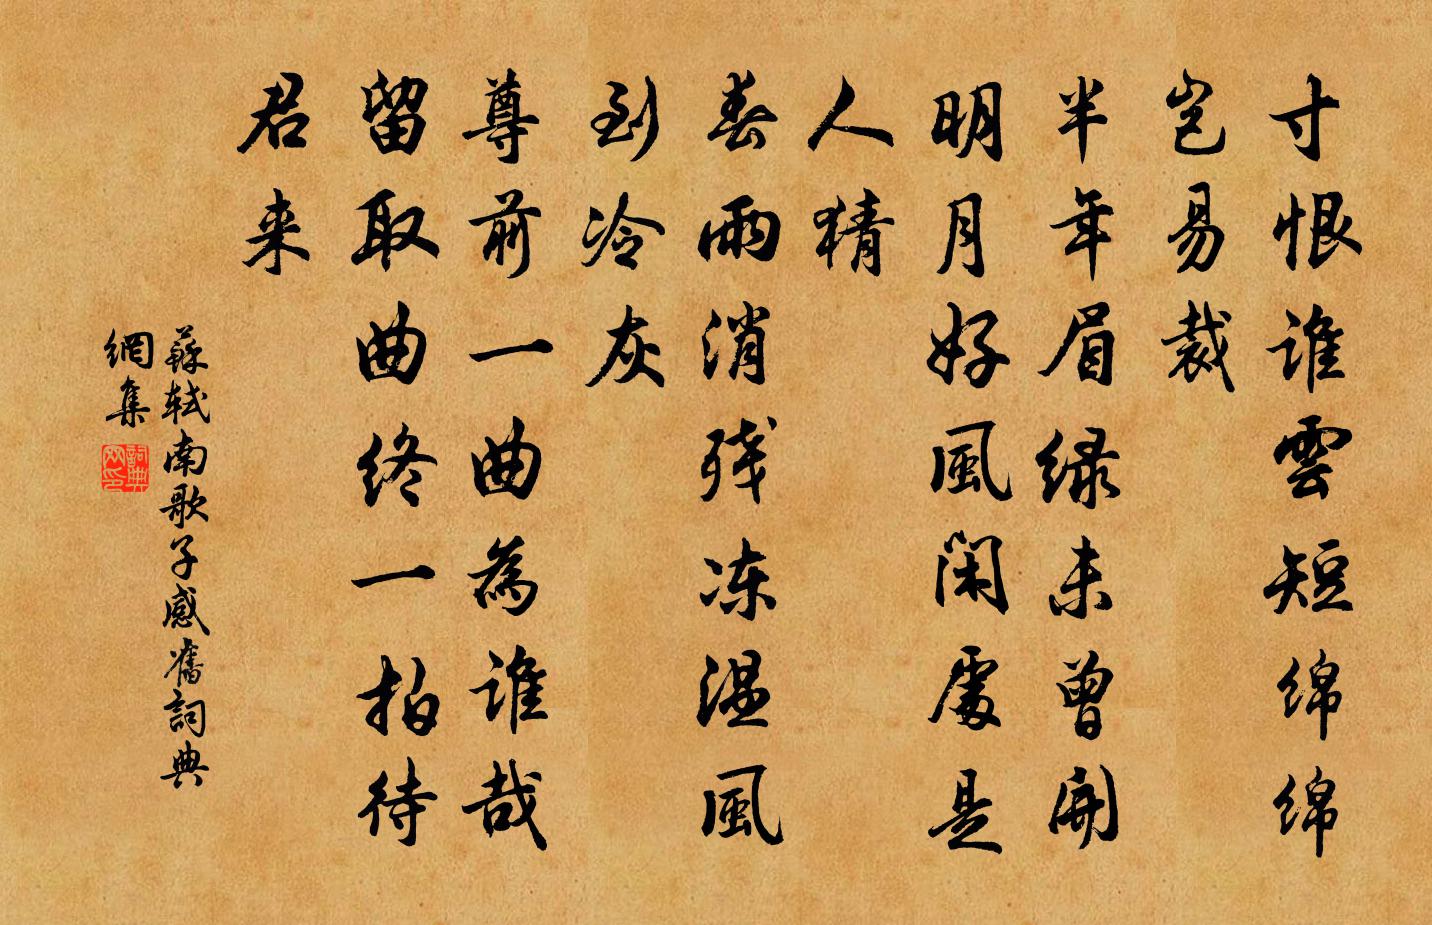 寸恨谁雲短绵绵
岂易裁
半年眉绿未曾開
明月好風闲處是
人猜
春雨消残冻温風
到冷灰
尊前一曲為谁哉
留取曲终一拍待
君来
蘇軾南歌子感舊詞典
網集
詞典
网印